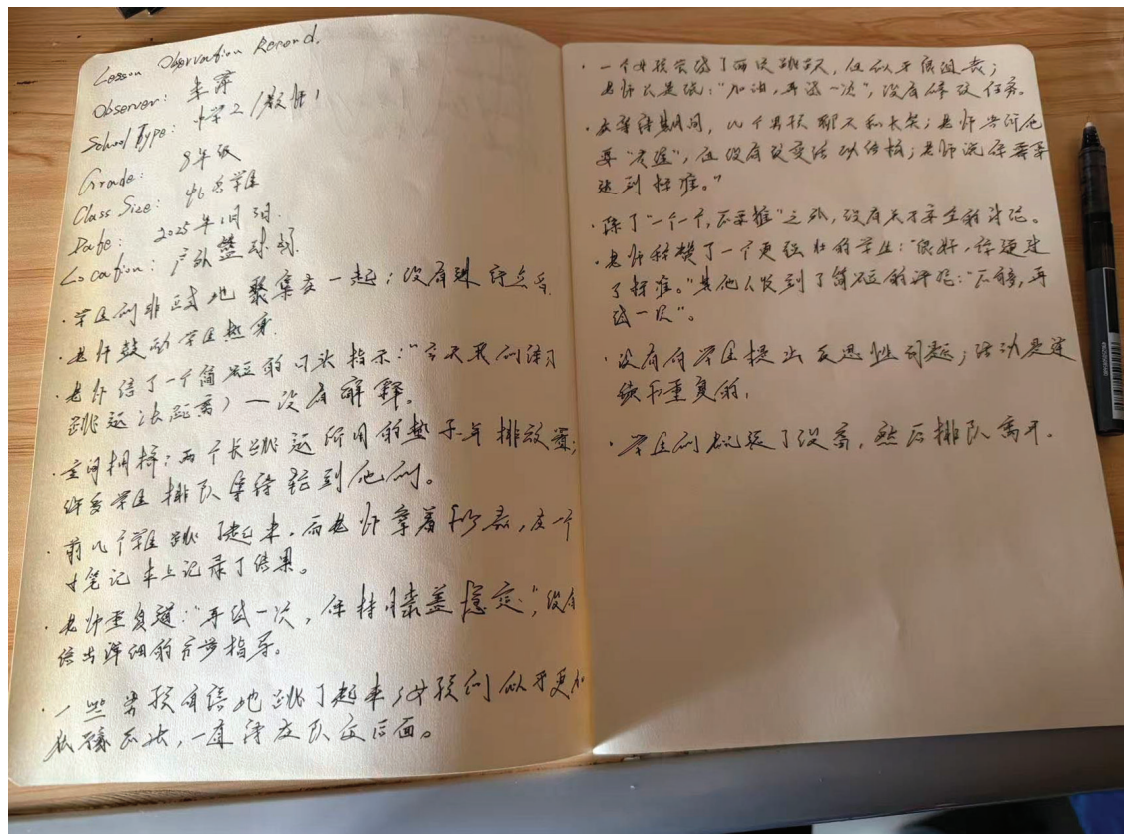 Lesson Observation Record.
Observer:
School Type: 中学2 /教师1
Grade: 8年级
Class Size: 46名学生
Date: 2025年 月 日.
Location: 户外篮球场.
· 学生们非正式地聚集在一起;没有进行点名.
· 老师鼓励学生热身
· 老师给了一个简短的口头指示:"今天我们练习
跳远(长距离)—没有解释。
· 空间拥挤;两个长跳远所用的垫子并排放置;
许多学生排队等待轮到他们。
· 前几个学生跳了起来,而老师拿着秒表,在一个
笔记本上记录了结果。
· 老师重复道:"再试一次,保持膝盖稳定",没有
给出详细的 步指导。
· 一些男孩有信心地跳了起来;女孩们似乎更加
犹豫不决,一直待在队伍后面。
· 一个女孩尝试了两次跳跃,但似乎很沮丧;
老师只是说:"加油,再试一次",没有修改任务。
· 在等待期间,几个男孩聊天和大笑;老师告诉他
要" ",但没有改变活动结构;老师说你需要
达到标准。"
· 除了"一个一个,不要推"之外,没有关于安全的讨论。
· 老师称赞了一个更强壮的学生:"很好,你通过
了标准。"其他人收到了简短的评论:"不够,再
试一次"。
· 没有向学生提出反思性问题;活动是连
续和重复的,
· 学生们 了设备,然后排队离开。